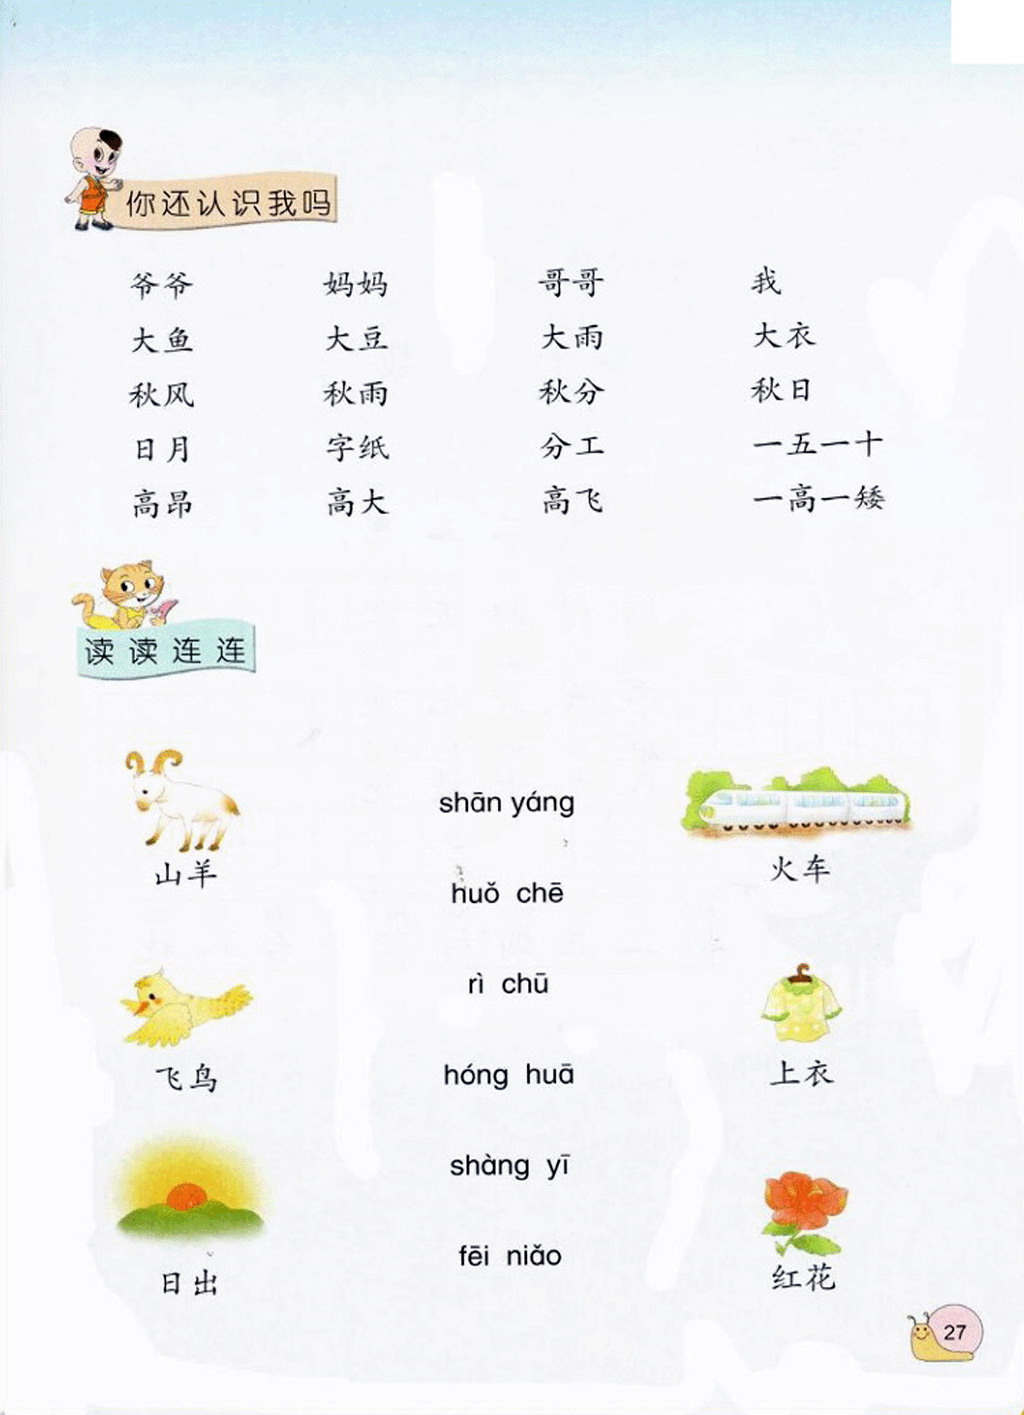 你还认识我吗
爷爷 妈妈 哥哥 我
大鱼 大豆 大雨 大衣
秋风 秋雨 秋分 秋日
日月 字纸 分工 一五一十
高昂 高大 高飞 一高一矮
读读连连
shān yáng
山羊 火车
huǒ chē
rì chū
飞鸟 上衣
hóng huā
shàng yī
fēi niǎo
日出 红花
27